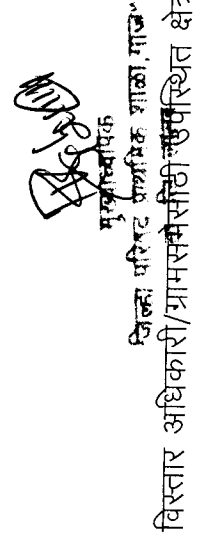 मुख्याध्यापक
जिल्हा परिषद प्राथमिक शाळा,
विस्तार अधिकारी/ग्रामसभेसाठी उपस्थित